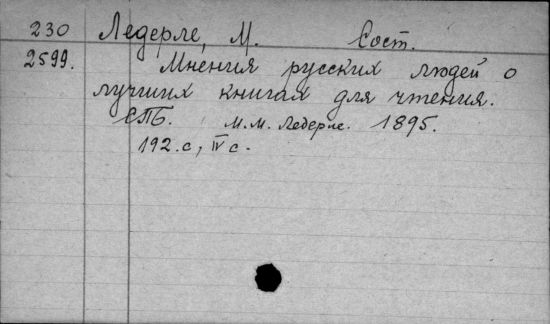 230 Ледерле, М. Сост.
2599. Мнения русских людей о
лучших книгах для чтения.
СПБ. М.М. Ледерле. 1895.
192.с, IV с.